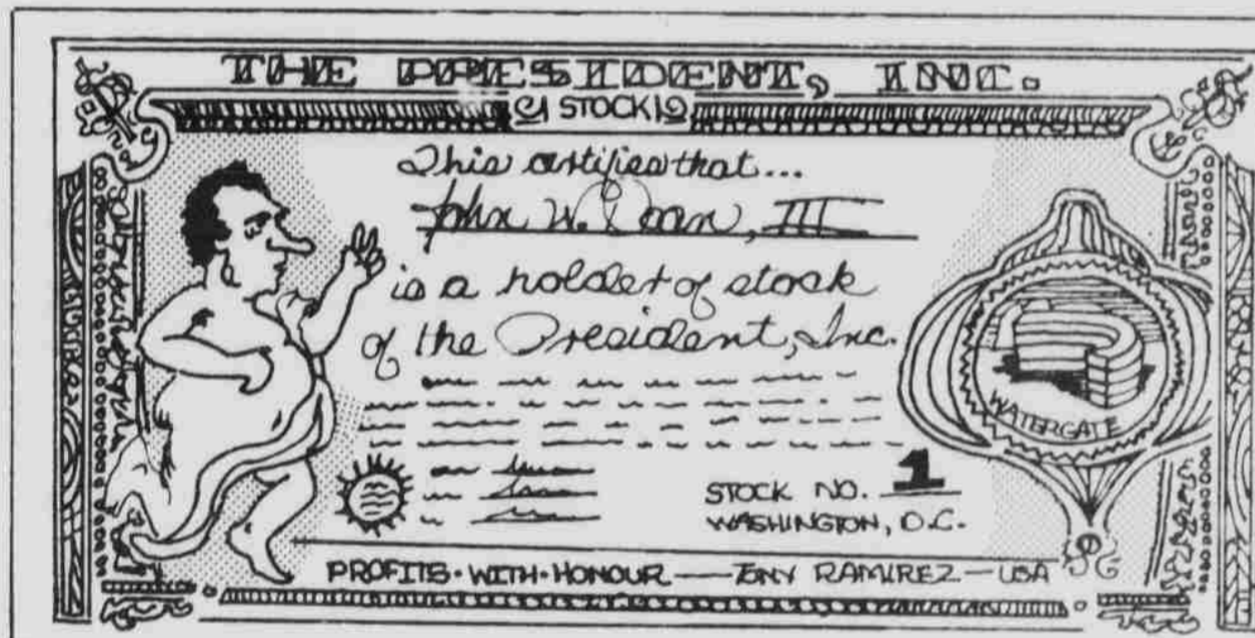 THE PRESIDENT, INC.
1 STOCK 1
This certifies that...
John W. Dean, III
is a holder of stock
of the President, Inc.
WATERGATE
STOCK NO. 1
WASHINGTON, D.C.
PROFITS·WITH·HONOUR — TONY RAMIREZ — USA